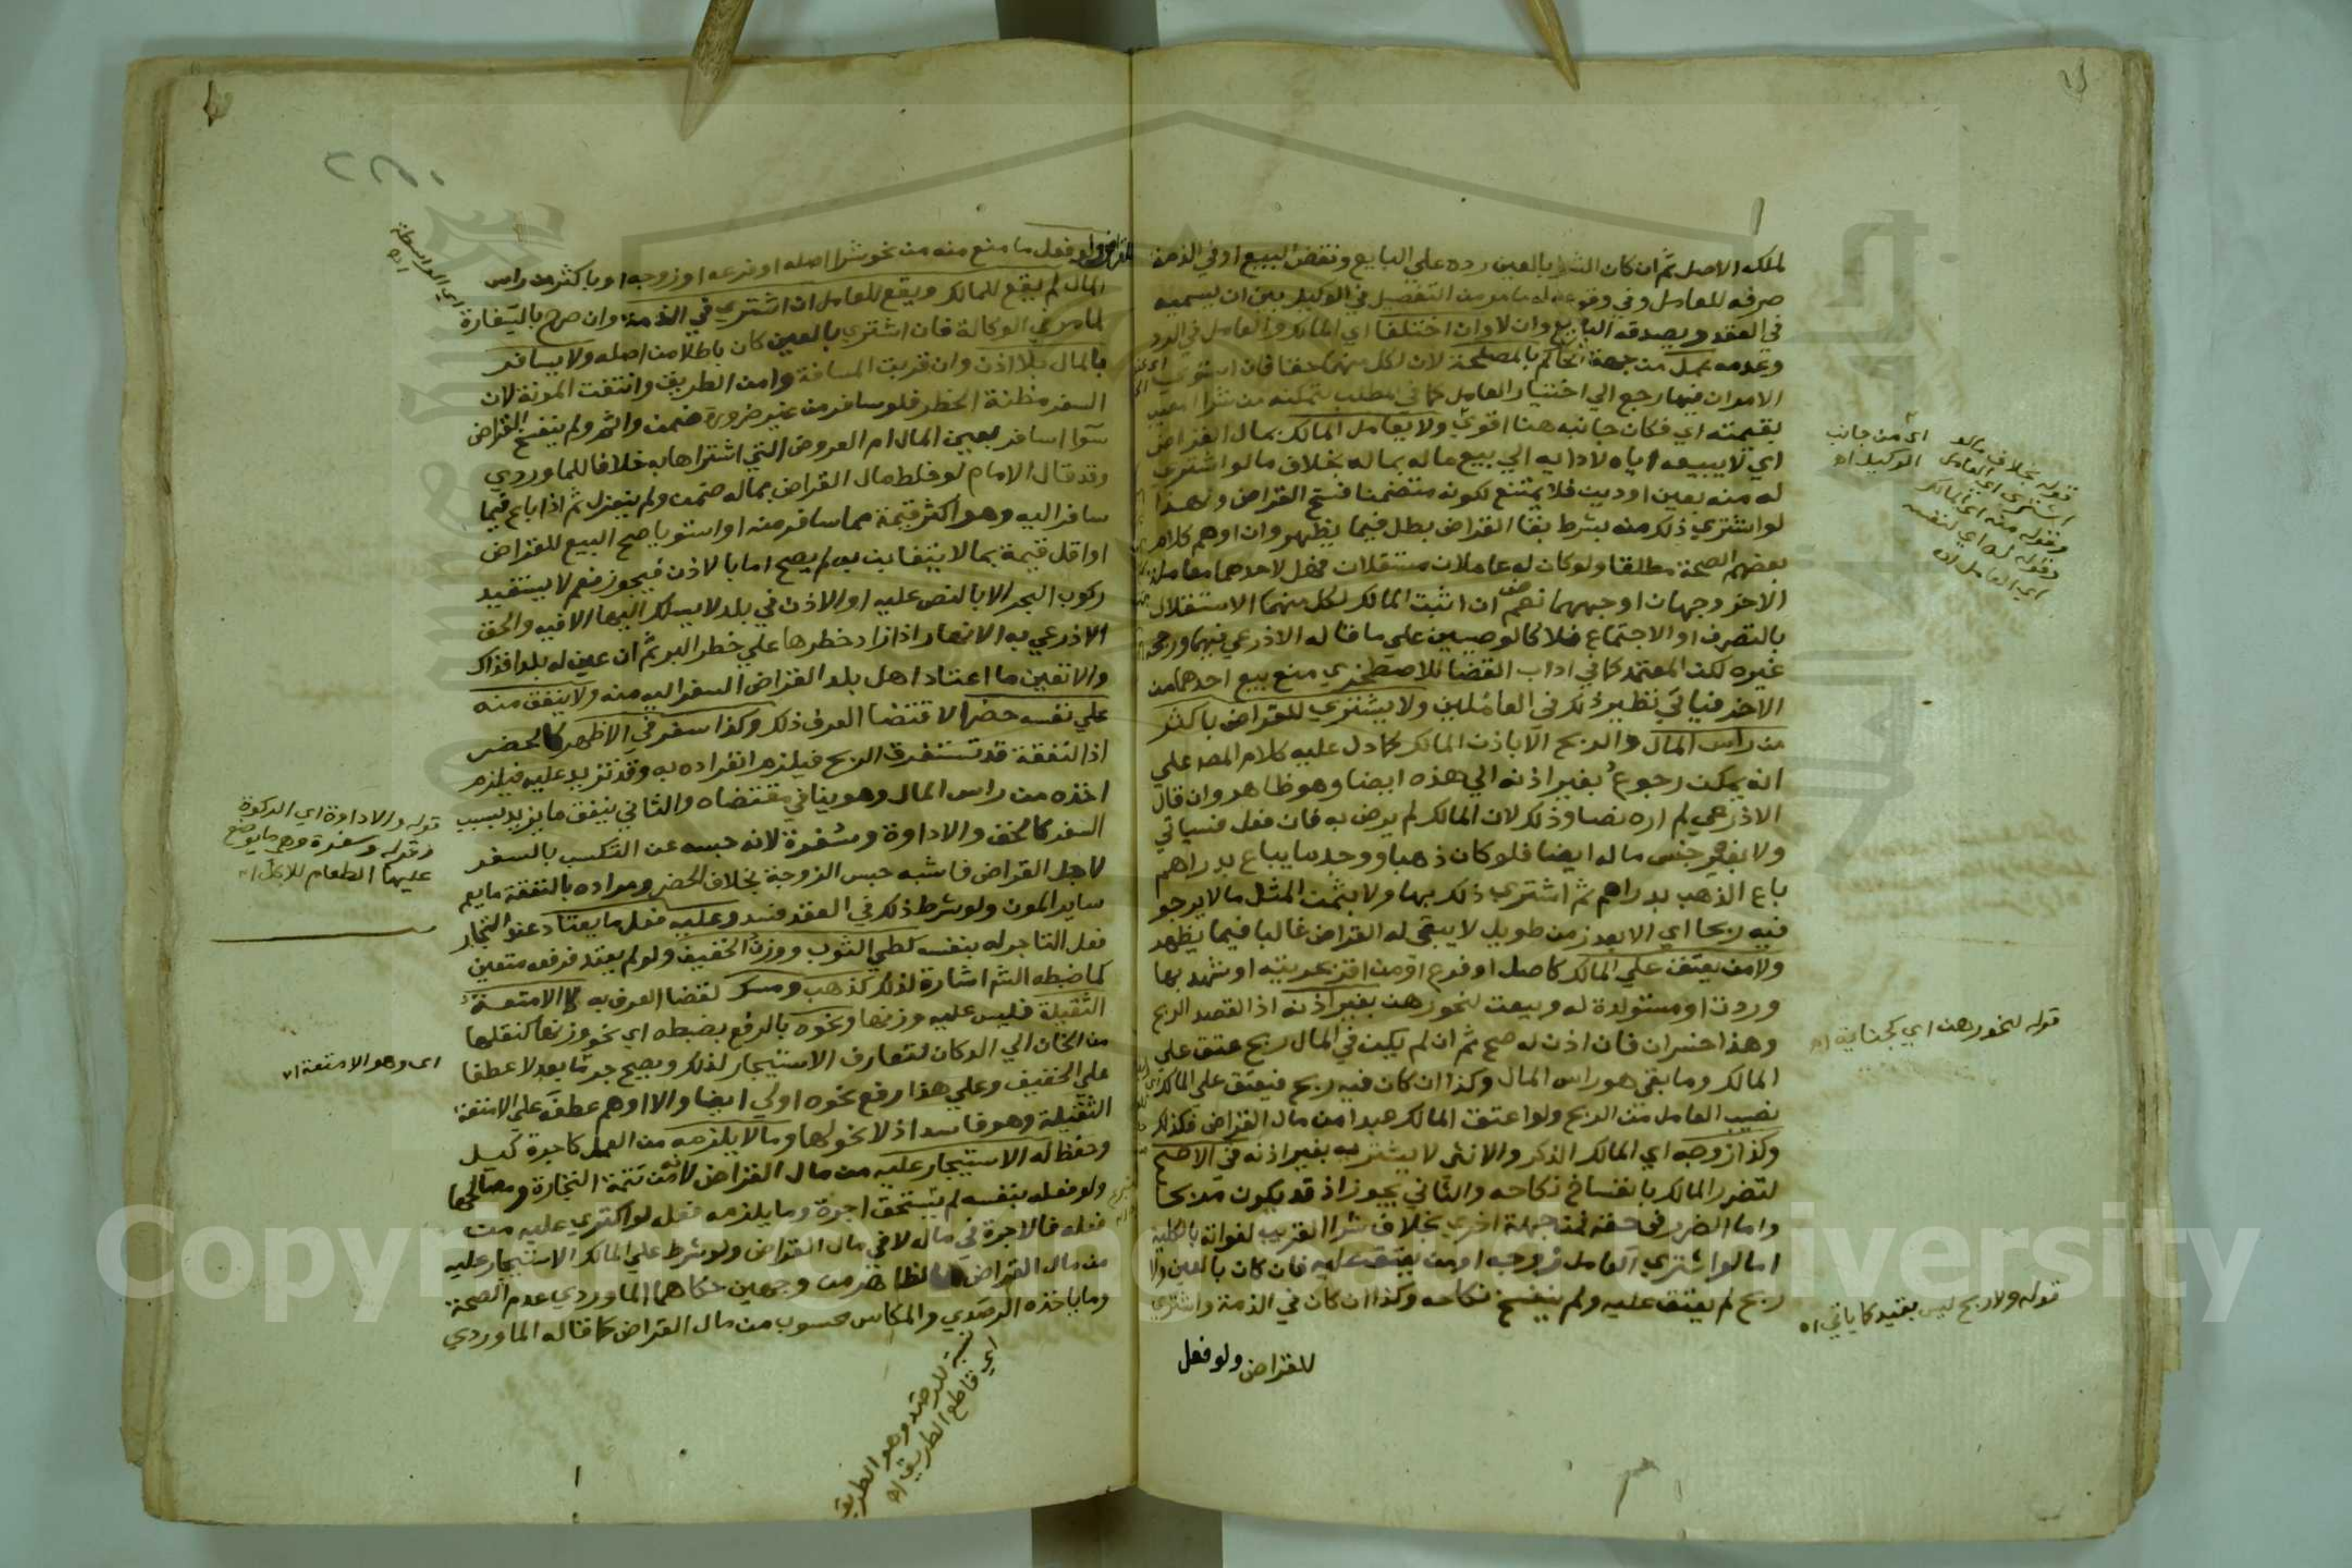 لملك الاصل ثم ان كان الشرا بالعين رده علي البايع ونقض البيع او في الذمة
صرفه للعامل وفي وقوعه له ما مر من التفصيل في الوكيل بين ان يسميه
في العقد ويصدقه البايع وان لا وان اختلفا اي المالك والعامل في الرد
وعدمه عمل من جهة الحاكم بالمصلحة لان لكل منهما حقا فان استوي
الامران فيها رجع الي اختيار العامل كما في المطلب لتمكنه من شرا المعيب
بقيمته اي فكان جانبه هنا اقوي ولا يعامل المالك بمال القراض
اي لا يبيعه اياه لادايه الي بيع ماله بماله بخلاف ما لو اشتري
له منه بعين او دين فلا يمتنع لكونه متضمنا فسخ القراض ولهذا
لو اشتري ذلك منه بشرط بقا القراض بطل فيما يظهر وان اوهم كلام
بعضهم الصحة مطلقا ولو كان له عاملان مستقلان فهل لاحدهما معاملة
الاخر وجهان اوجههما نعم ان اثبت المالك لكل منهما الاستقلال
بالتصرف او الاجتماع فلا كالوصيين علي ما قاله الاذرعي فيهما ورجحه
غيره لكن المعتمد كما في اداب القضا للاصطخري منع بيع احدهما من
الاخر فياتي نظير ذلك في العاملين ولا يشتري للقراض باكثر
من راس المال والربح الا باذن المالك كما دل عليه كلام المص علي
انه يمكن رجوع بغير اذنه الي هذه ايضا وهو ظاهر وان قال
الاذرعي لم اره نصا وذلك لان المالك لم يرض به فان فعل فسياتي
ولا بغير جنس ماله ايضا فلو كان ذهبا ووجد ما يباع بدراهم
باع الذهب بدراهم ثم اشتري ذلك بها ولا بثمن المثل ما لا يرجو
فيه ربحا اي الا بعد زمن طويل لا يبقي له القراض غالبا فيما يظهر
ولا من يعتق علي المالك كاصل او فرع او من اقر بحريته او شهد بها
وردت او مستولدة له وبيعت لنحو رهن بغير اذنه اذ القصد الربح
وهذا خسران فان اذن له صح ثم ان لم يكن في المال ربح عتق علي
المالك وما بقي هو راس المال وكذا ان كان فيه ربح فيعتق علي المالك
نصيب العامل من الربح ولو اعتق المالك عبدا من مال القراض فكذلك
وكذا زوجه اي المالك الذكر والانثي لا يشتريه بغير اذنه في الاصح
لتضرر المالك بانفساخ نكاحه والثاني يجوز اذ قد يكون مربحا
واما الضرر في حقه فمن جهة اخري بخلاف شرا القريب لفواته بالكلية
اما لو اشتري العامل زوجه او من يعتق عليه فان كان بالعين ولا
ربح لم يعتق عليه ولم ينفسخ نكاحه وكذا ان كان في الذمة واشتري
للقراض ولو فعل
قوله بخلاف ما لو
اشتري اي العامل
وقوله منه اي المالك
وقوله له اي لنفسه
اي العامل اه
اي من جانب
الوكيل اه
قوله لنحو رهن اي كجناية اه
قوله ولا ربح ليس بقيد كما ياتي اه
للقراض ولو فعل ما منع منه من نحو شرا اصله او فرعه او زوجه او باكثر من راس
المال لم يقع للمالك ويقع للعامل ان اشتري في الذمة وان صرح بالسفارة
لما مر في الوكالة فان اشتري بالعين كان باطلا من اصله ولا يسافر
بالمال بلا اذن وان قربت المسافة وامن الطريق وانتفت المونة لان
السفر مظنة الخطر فلو سافر من غير ضرورة ضمن واثم ولم ينفسخ القراض
سوا اسافر بعين المال ام العروض التي اشتراها به خلافا للماوردي
وقد قال الامام لو خلط مال القراض بماله ضمن ولم ينعزل ثم اذا باع فيما
سافر اليه وهو اكثر قيمة مما سافر منه او استويا صح البيع للقراض
او اقل قيمة بما لا يتغابن به لم يصح اما بالاذن فيجوز نعم لا يستفيد
ركوب البحر الا بالنص عليه او الاذن في بلد لا يسلك اليها الا فيه والحق
الاذرعي به الانهار اذا زاد خطرها علي خطر البر ثم ان عين له بلد فذاك
والا تعين ما اعتاد اهل بلد القراض السفر اليه منه ولا ينفق منه
علي نفسه حضرا لاقتضا العرف ذلك وكذا سفر في الاظهر كالحضر
اذ النفقة قد تستغرق الربح فيلزم انفراده به وقد تزيد عليه فيلزم
اخذه من راس المال وهو ينافي مقتضاه والثاني ينفق ما يزيد بسبب
السفر كالخف والاداوة وسفرة لانه حبسه عن التكسب بالسفر
لاجل القراض فاشبه حبس الزوجة بخلاف الحضر ومراده بالنفقة ما يعم
ساير المون ولو شرط ذلك في العقد فسد وعليه فعل ما يعتاد عند التجار
فعل التاجر له بنفسه كطي الثوب ووزن الخفيف ولو لم يعتد فرفعه متعين
كما ضبطه الش اشارة لذلك كذهب ومسك لقضا العرف به لا الامتعة
الثقيلة فليس عليه وزنها ونحوه بالرفع بضبطه اي نحو وزنها كنقلها
من الخان الي الدكان لتعارف الاستيجار لذلك ويصح جره بما بعد لا عطفا
علي الخفيف وعلي هذا رفع نحوه اولي ايضا والا اوهم عطفه علي الامتعة
الثقيلة وهو فاسد اذ لا نحو لها وما لا يلزمه من العمل كاجرة كيل
وحفظ له الاستيجار عليه من مال القراض لانه من تتمة التجارة ومصالحها
ولو فعله بنفسه لم يستحق اجرة وما يلزمه فعله لو اكتري عليه من
فعله فالاجرة في ماله لا في مال القراض ولو شرط علي المالك الاستيجار عليه
من مال القراض فالظاهر من وجهين حكاهما الماوردي عدم الصحة
وما ياخذه الرصدي والمكاس محسوب من مال القراض كما قاله الماوردي
اي الواسطة
اه
قوله والاداوة اي الركوة
وقوله وسفرة وهي ما يوضع
عليها الطعام للاكل اه
اي وهو الامتعة اه
نسبة للرصد وهو الطريق
اي قاطع الطريق اه
Copyright © King Saud University